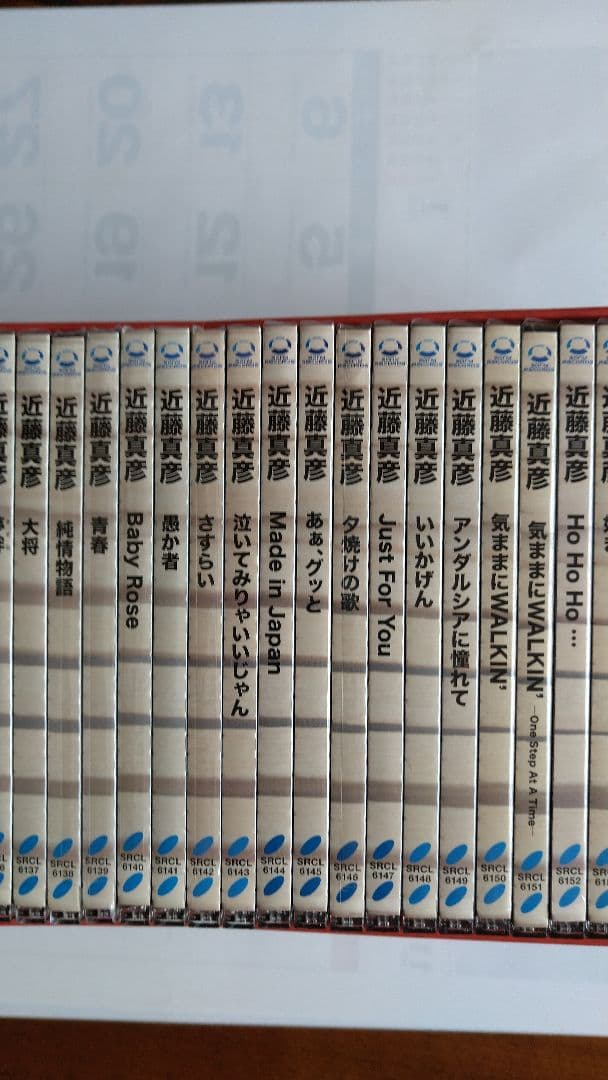 近藤真彦 大将 SRCL 6137
近藤真彦 純情物語 SRCL 6138
近藤真彦 青春 SRCL 6139
近藤真彦 Baby Rose SRCL 6140
近藤真彦 愚か者 SRCL 6141
近藤真彦 さすらい SRCL 6142
近藤真彦 泣いてみりゃいいじゃん SRCL 6143
近藤真彦 Made in Japan SRCL 6144
近藤真彦 あぁ、グッと SRCL 6145
近藤真彦 夕焼けの歌 SRCL 6146
近藤真彦 Just For You SRCL 6147
近藤真彦 いいかげん SRCL 6148
近藤真彦 アンダルシアに憧れて SRCL 6149
近藤真彦 気ままにWALKIN' SRCL 6150
近藤真彦 気ままにWALKIN' —One Step At A Time— SRCL 6151
近藤真彦 Ho Ho Ho … SRCL 6152